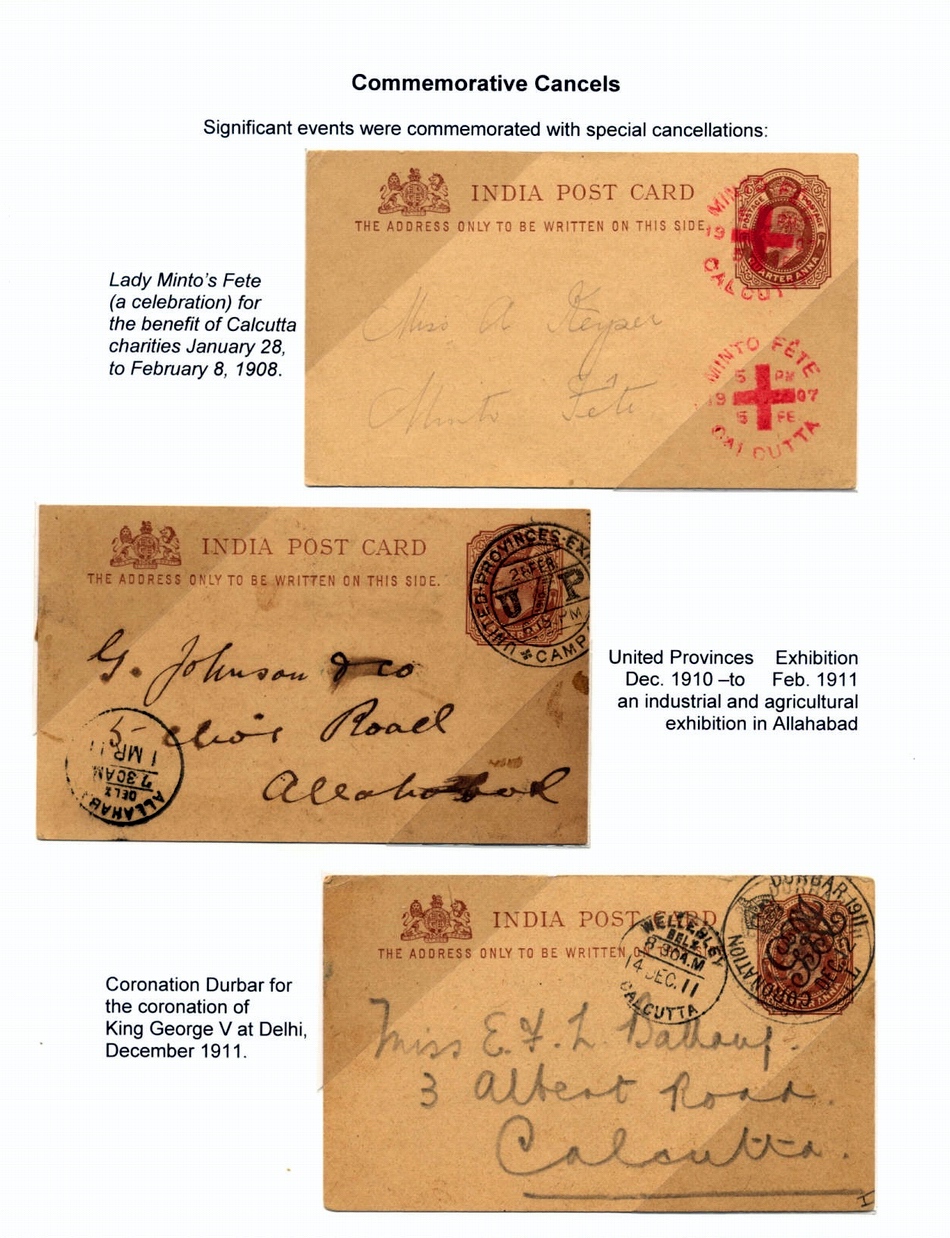 Commemorative Cancels
Significant events were commemorated with special cancellations:
INDIA POST CARD
THE ADDRESS ONLY TO BE WRITTEN ON THIS SIDE.
MINTO
19
CALCUT
POSTAGE POSTAGE
QUARTER ANNA
Lady Minto's Fete
(a celebration) for
the benefit of Calcutta
charities January 28,
to February 8, 1908.
Miss A Keyser
Minto Fête
MINTO FÊTE
5 PM
19 07
5 FE
CALCUTTA
INDIA POST CARD
THE ADDRESS ONLY TO BE WRITTEN ON THIS SIDE.
UNITED-PROVINCES-EX
FEB
U P
PM
CAMP
G. Johnson & co
5 Road
Allahabad
ALLAHAB
DELY
7.30AM
1 MR 11
United Provinces Exhibition
Dec. 1910 –to Feb. 1911
an industrial and agricultural
exhibition in Allahabad
INDIA POST CARD
THE ADDRESS ONLY TO BE WRITTEN
WELLESLEY
DELY.
8-30A.M
14 DEC. 11
CALCUTTA
CORONATION DURBAR-1911
DEC.
Coronation Durbar for
the coronation of
King George V at Delhi,
December 1911.
Miss E. F. L.
3 Albert Road.
Calcutta.